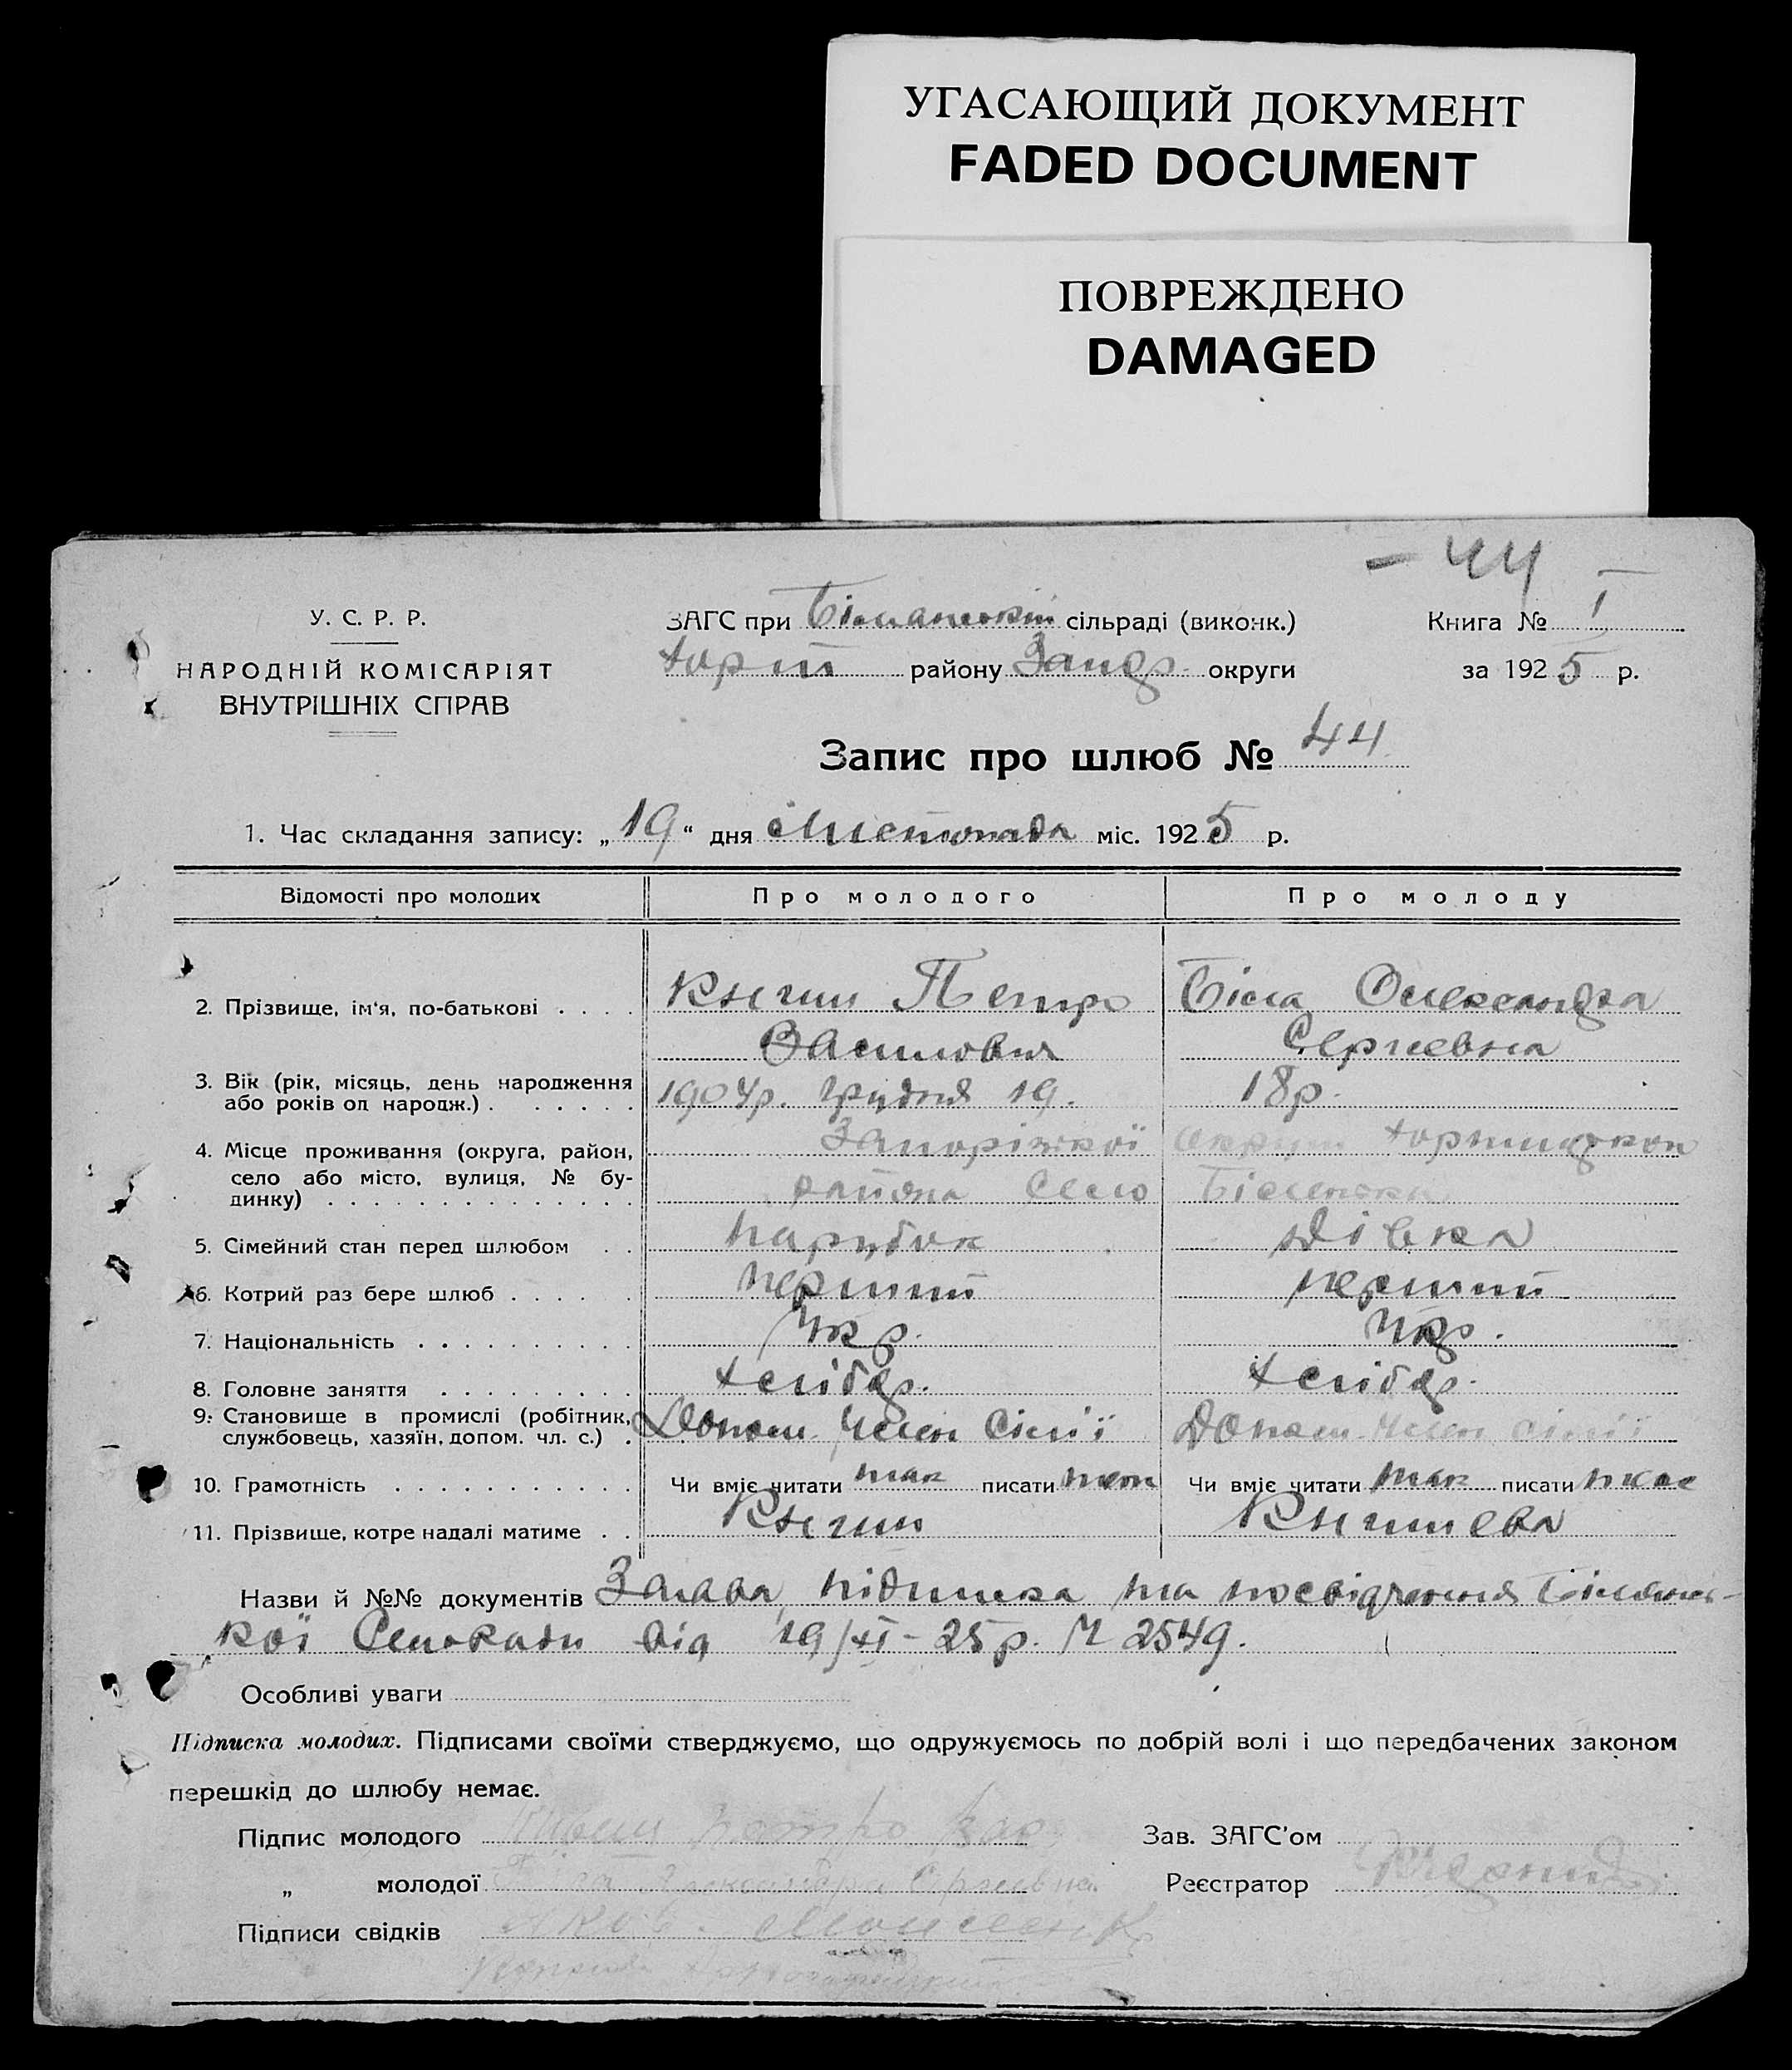 УГАСАЮЩИЙ ДОКУМЕНТ
FADED DOCUMENT
ПОВРЕЖДЕНО
DAMAGED
- 44
У. С. Р. Р.
НАРОДНІЙ КОМІСАРІЯТ
ВНУТРІШНІХ СПРАВ
ЗАГС при сільраді (виконк.)
району Запор. округи
Книга № I
за 1925 р.
Запис про шлюб № 44
1. Час складання запису: „19“ дня Листопада міс. 1925 р.
Відомості про молодих Про молодого Про молоду
2. Прізвище, ім'я, по-батькові . . . . Книш Петро Біла Олександра
Василович Сергієвна
3. Вік (рік, місяць, день народження
або років од народж.) . . . . . . 1904р. Грудня 19. 18р.
4. Місце проживання (округа, район,
село або місто, вулиця, № будинку) . . . . . . . . . . . . . .
Запоріжкої округи Хортицької
района Село Біленьке
5. Сімейний стан перед шлюбом . . Парубок Дівка
6. Котрий раз бере шлюб . . . . . перший перший
7. Національність . . . . . . . . . . Укр. Укр.
8. Головне заняття . . . . . . . . . Хлібор. Хлібор.
9. Становище в промислі (робітник,
службовець, хазяїн, допом. чл. с.) . Допом. Член Сімї Допом. Член сімї
10. Грамотність . . . . . . . . . . . Чи вміє читати так писати так Чи вміє читати так писати так
11. Прізвище, котре надалі матиме . . Книш Книшева
Назви й №№ документів Заява, підписка та посвідчення Білянсь-
кої Сельради від 19/XI-25р. № 2549.
Особливі уваги
Підписка молодих. Підписами своїми стверджуємо, що одружуємось по добрій волі і що передбачених законом
перешкід до шлюбу немає.
Підпис молодого Петро Вас. Зав. ЗАГС'ом
„ молодої Біла Сергиевна Реєстратор
Підписи свідків